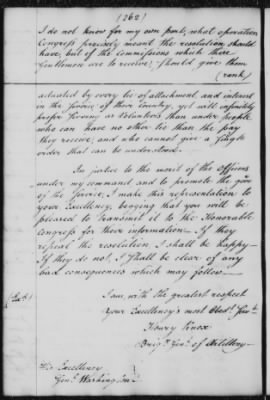 (262)
I do not know for my own part, what operation
Congress precisely meant the resolution should
have, but if the commissions which these
Gentlemen are to receive, should give them
(rank)
actuated by every tie of attachment and interest
in the service of their Country, yet will infinitely
prefer serving as Volunteers than under people
who can have no other tie than the pay
they receive, and who cannot give a single
order that can be understood.
In justice to the merit of the Officers
under my command and to promote the
of the Service, I make this representation to
your Excellency, begging that you will be
pleased to transmit it to the Honorable
Congress for their information. If they
repeal the resolution, I shall be happy—
If they do not, I shall be clear of any
bad consequences which may follow—
I am with the greatest respect
Your Excellency's most Obedt. Servt.
Henry Knox
Brigr. Genl. of Artillery—
His Excellency
Genl. Washington